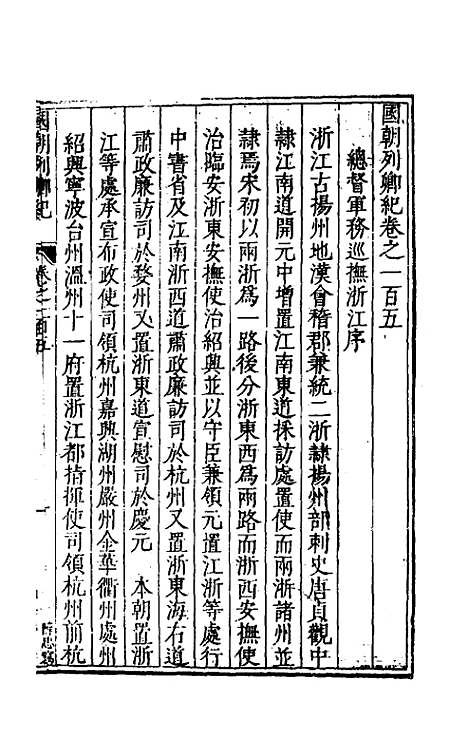 國朝列卿紀卷之一百五
總督軍務巡撫浙江序
浙江古揚州地漢會稽郡兼統二浙隷揚州部刺史唐貞觀中
隷江南道開元中增置江南東道採訪處置使而兩浙諸州並
隷焉宋初以兩浙爲一路後分浙東西爲兩路而浙西安撫使
治臨安浙東安撫使治紹興並以守臣兼領元置江浙等處行
中書省及江南浙西道肅政廉訪司於杭州又置浙東海右道
肅政廉訪司於婺州又置浙東道宣慰司於慶元 本朝置浙
江等處承宣布政使司領杭州嘉興湖州嚴州金華衢州處州
紹興寧波台州溫州十一府置浙江都指揮使司領杭州前杭
國朝列卿紀 卷之一百五 一